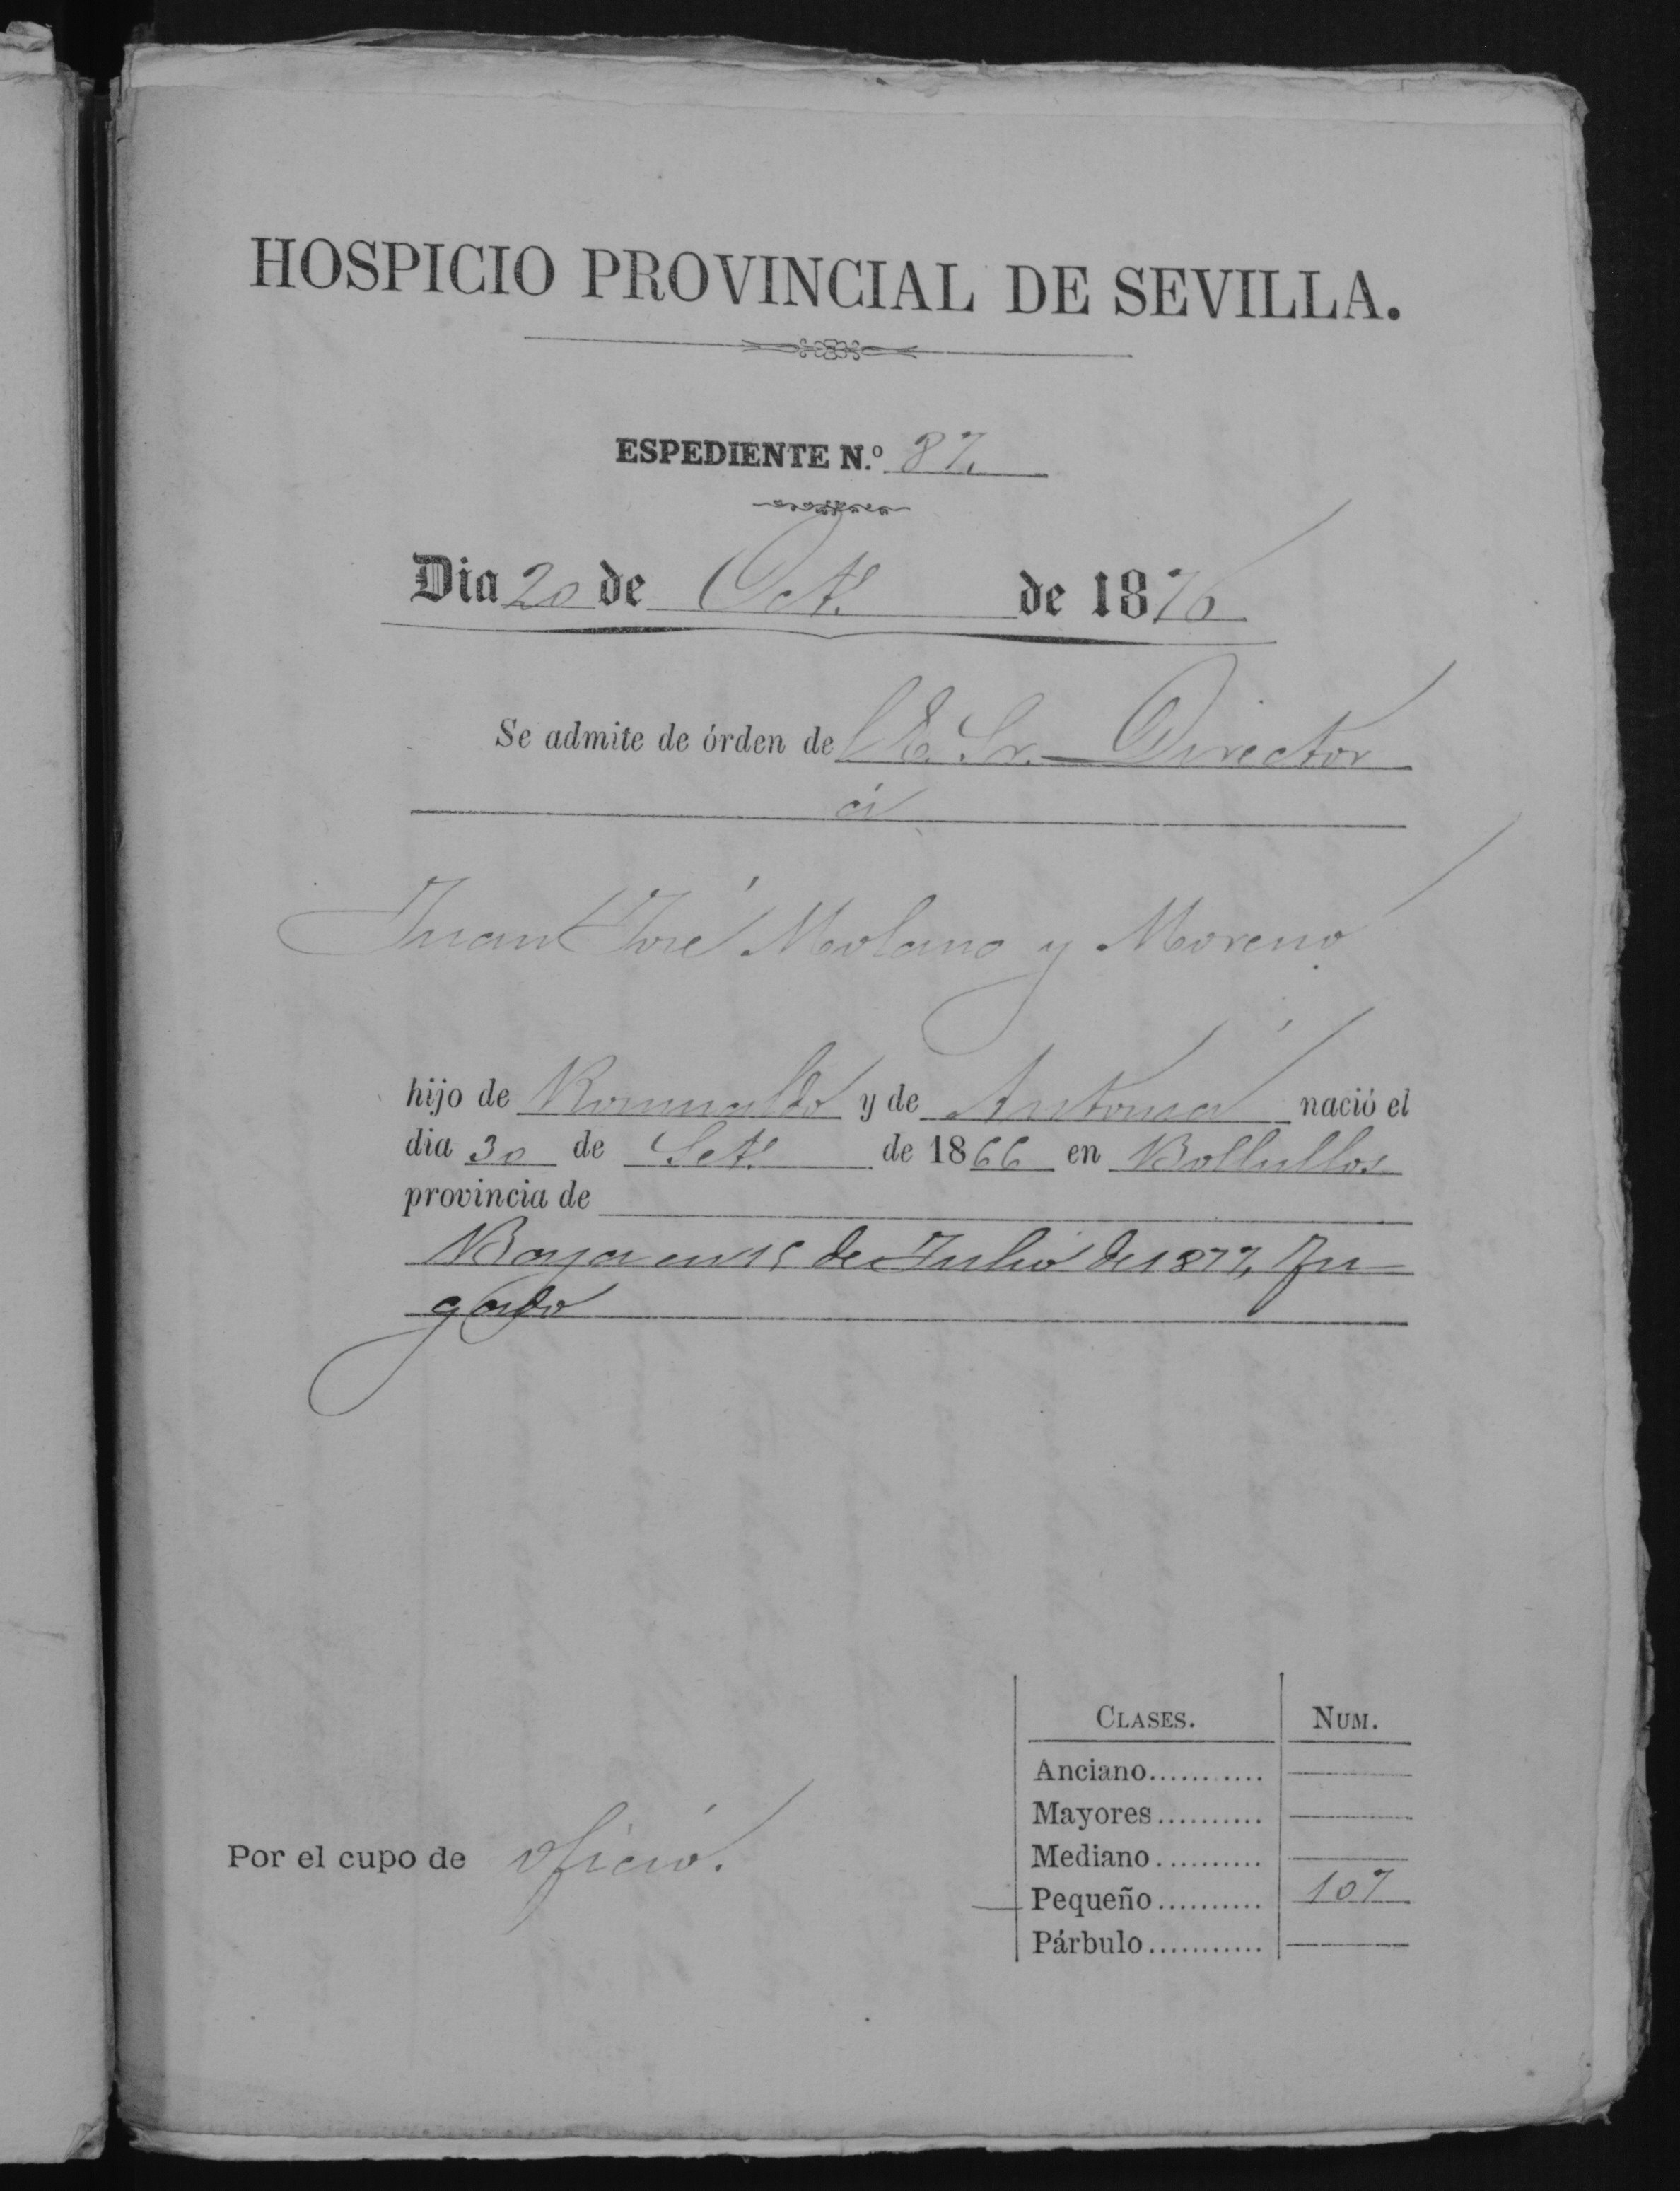 HOSPICIO PROVINCIAL DE SEVILLA.
ESPEDIENTE N.º 87.
Dia 20 de Oct.e de 1876
Se admite de órden de l E. Sr. Director
á
Juan José Molano y Moreno
hijo de Romualdo y de Antonia nació el
dia 30 de Set.e de 1866 en Bollullos
provincia de
Baja en 15 de Julio de 1877, Fu-
gado
CLASES. NUM.
Anciano...........
Mayores..........
Mediano..........
Pequeño.......... 107
Párbulo...........
Por el cupo de oficio.